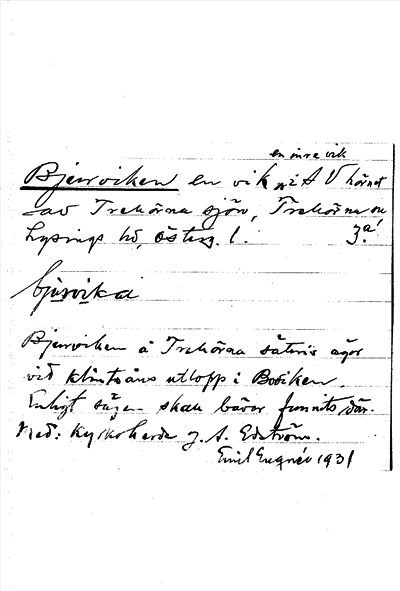 en inre vik
Bjurviken en vik i S V hörnet
av Trehörna sjön, Trehörna sn,
Lysings hd, Österg. l. 3a!
bju̱rvi̱ka
Bjurviken å Trehörna säteris ägor
vid utlopp i Bosiken.
Enligt sägen skall bävar funnits där.
Med: Kyrkoherde J. A. Edström.
Emil Eugnér 1931